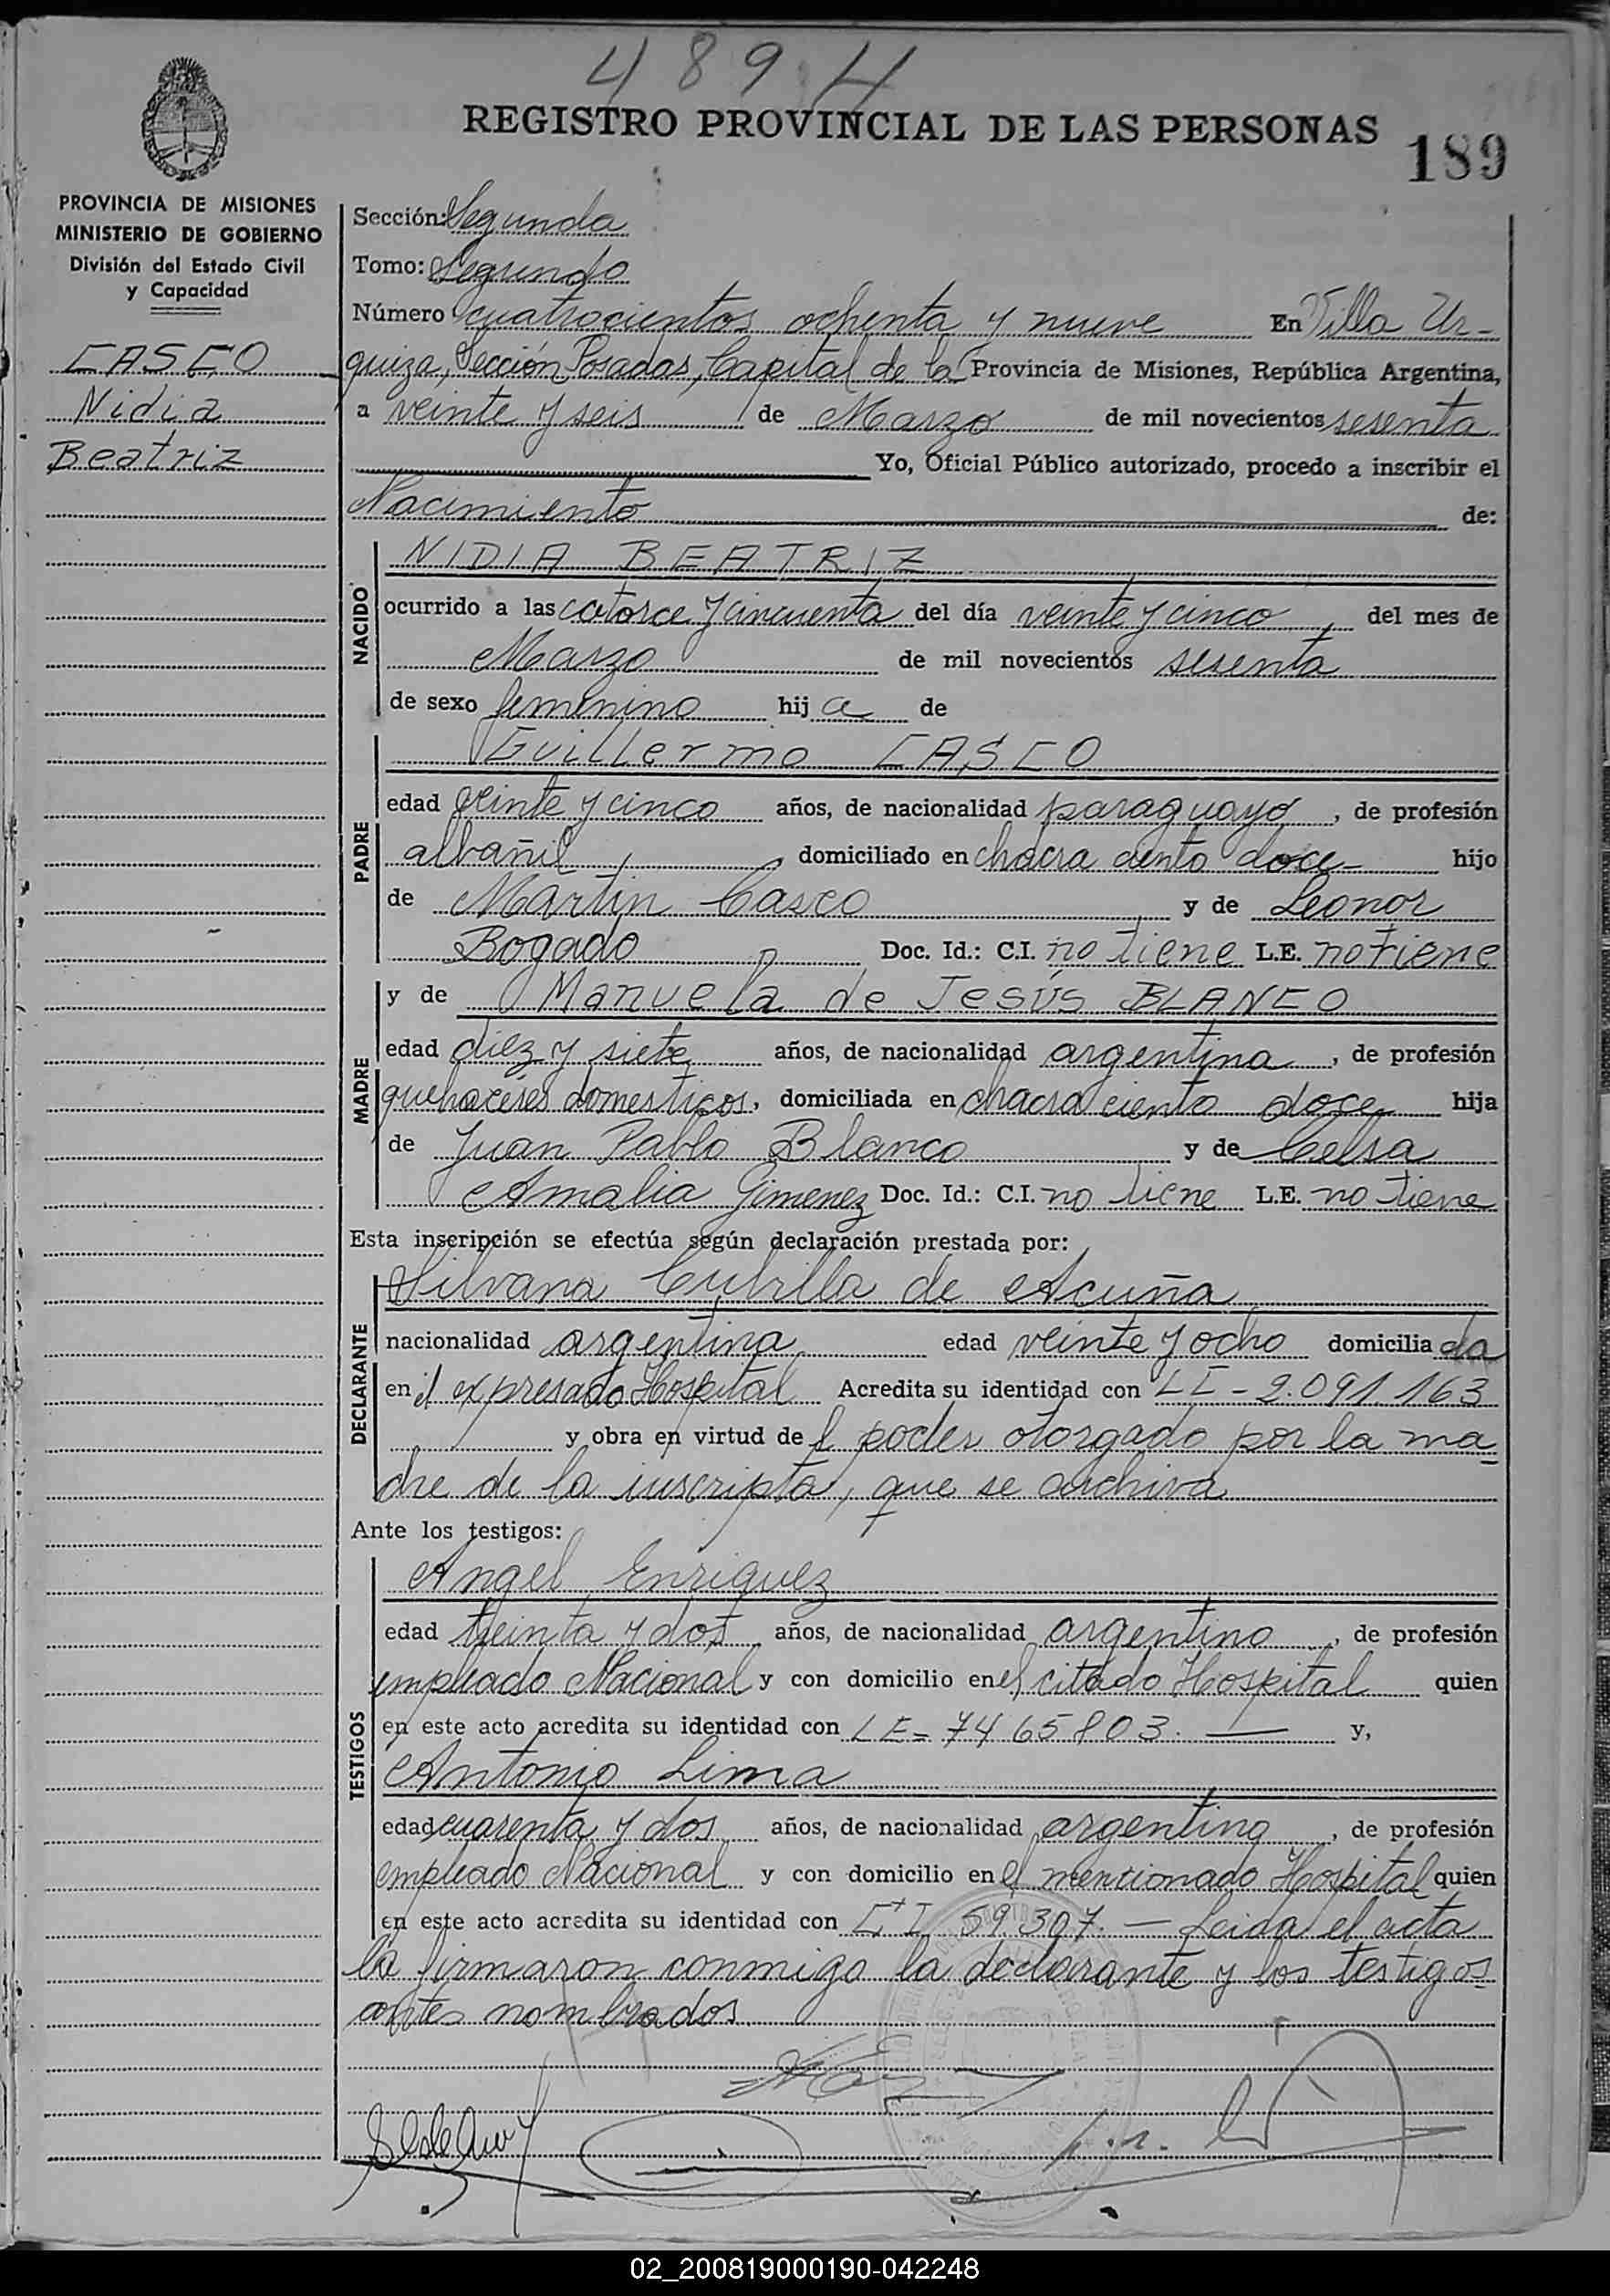 489 H
REGISTRO PROVINCIAL DE LAS PERSONAS
189
PROVINCIA DE MISIONES
MINISTERIO DE GOBIERNO
División del Estado Civil
y Capacidad
CASCO
Nidia
Beatriz
Sección: Segunda
Tomo: Segundo
Número cuatrocientos ochenta y nueve En Villa Ur-
quiza, Sección Posadas, Capital de la Provincia de Misiones, República Argentina,
a veinte y seis de Marzo de mil novecientos sesenta
Yo, Oficial Público autorizado, procedo a inscribir el
Nacimiento de:
NACIDO
NIDIA BEATRIZ
ocurrido a las catorce y cincuenta del día veinte y cinco, del mes de
Marzo de mil novecientos sesenta
de sexo femenino hij a de
PADRE
Guillermo CASCO
edad veinte y cinco años, de nacionalidad paraguayo, de profesión
albañil, domiciliado en chacra ciento doce- hijo
de Martín Casco y de Leonor
Bogado Doc. Id.: C.I. no tiene L.E. no tiene
MADRE
y de Manuela de Jesús BLANCO
edad diez y siete años, de nacionalidad argentina, de profesión
quehaceres domesticos, domiciliada en chacra ciento doce hija
de Juan Pablo Blanco y de Celsa
Amalia Gimenez Doc. Id.: C.I. no tiene L.E. no tiene
Esta inscripción se efectúa según declaración prestada por:
DECLARANTE
Silvana Cubilla de Acuña
nacionalidad argentina edad veinte y ocho domicilia da
en el expresado Hospital Acredita su identidad con 2.091.163
y obra en virtud del poder otorgado por la ma
dre de la inscripta, que se archiva
Ante los testigos:
TESTIGOS
Angel Enriquez
edad treinta y dos años, de nacionalidad argentino, de profesión
empleado Nacional y con domicilio en el citado Hospital quien
en este acto acredita su identidad con LE= 7465803. — y,
Antonio Lima
edad cuarenta y dos años, de nacionalidad argentino, de profesión
empleado Nacional y con domicilio en el mencionado Hospital quien
en este acto acredita su identidad con C I 59.307. — Leida el acta
la firmaron conmigo la declarante y los testigos
antes nombrados.
02_200819000190-042248